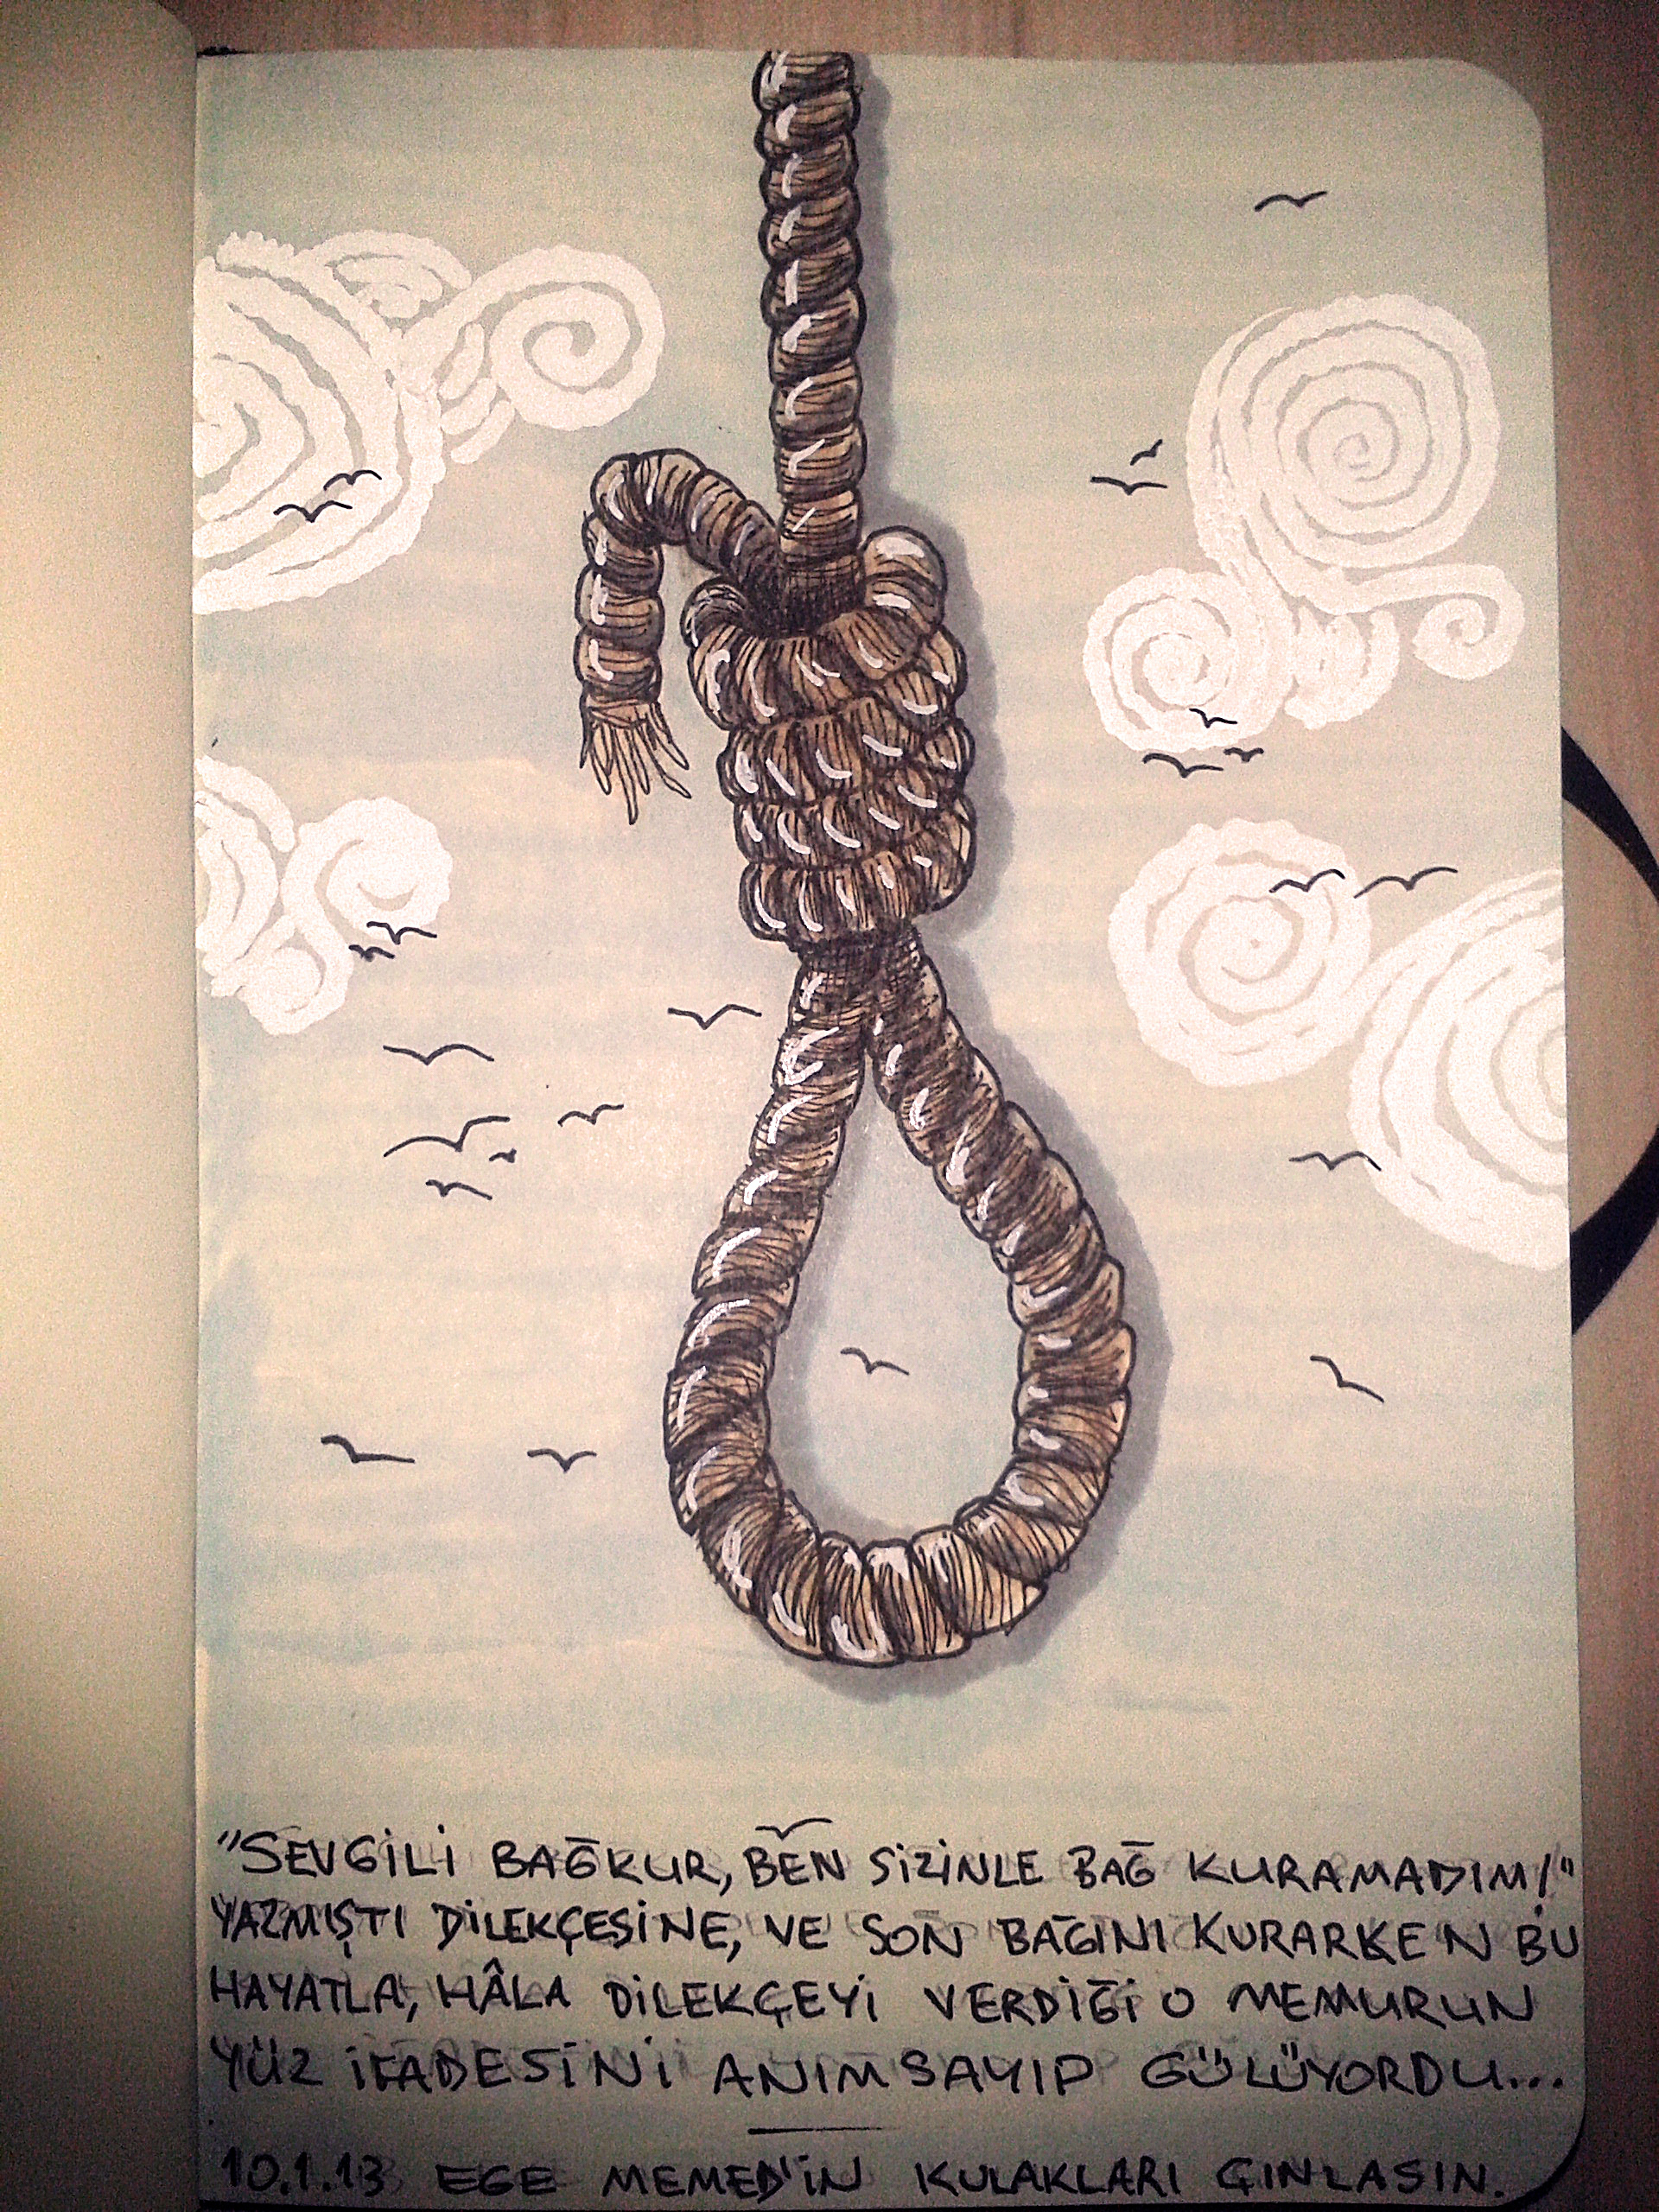 "SEVGİLİ BAĞKUR, BEN SİZİNLE BAĞ KURAMADIM!"
YAZMIŞTI DİLEKÇESİNE, VE SON BAĞINI KURARKEN BU
HAYATLA, HÂLA DİLEKÇEYİ VERDİĞİ O MEMURUN
YÜZ İFADESİNİ ANIMSAYIP GÜLÜYORDU...
10.1.13 EGE MEMED'İN KULAKLARI ÇINLASIN.